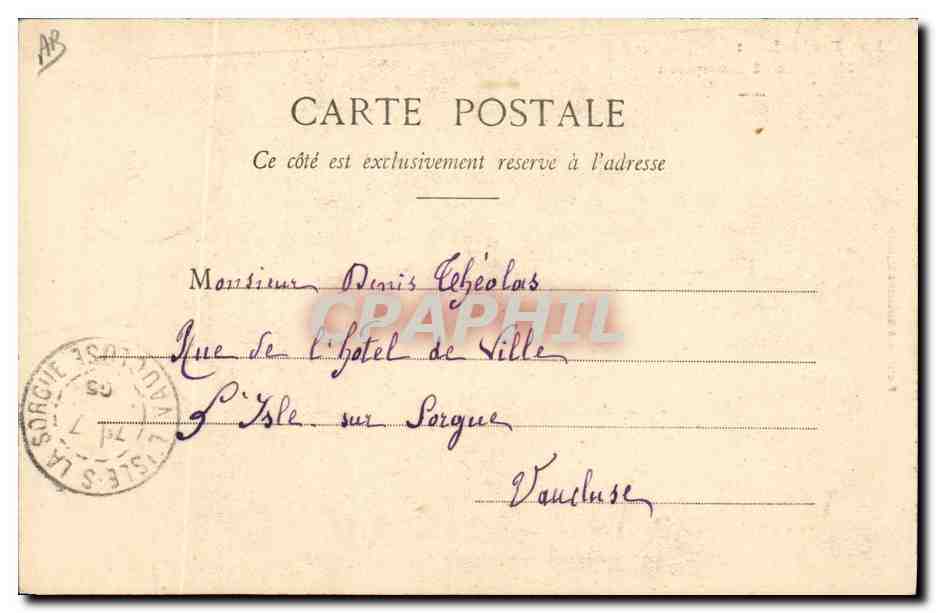 AB
CARTE POSTALE
Ce côté est exclusivement reserve à l'adresse
Monsieur Denis Théolas
CPAPHIL
Rue de l'hôtel de Ville
L'Isle sur Sorgue
Vaucluse
L'ISLE-S-LA SORGUE VAUCLUSE
7
05